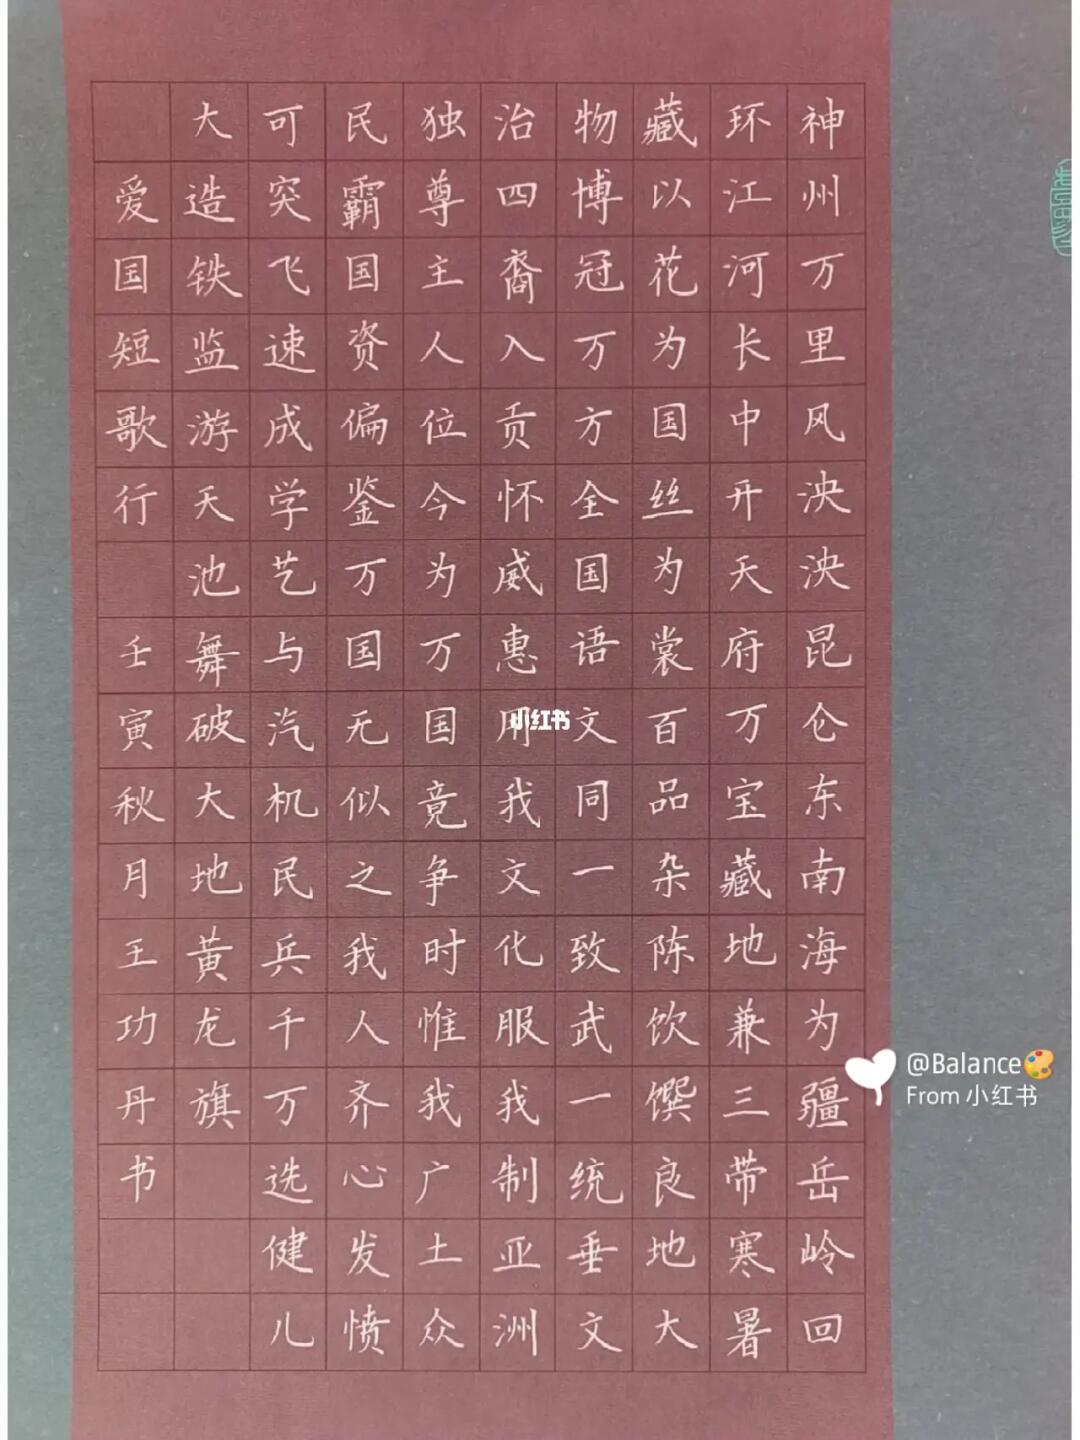 神州万里风泱泱昆仑东南海为疆岳岭回
环江河长中开天府万宝藏地兼三带寒暑
藏以花为国丝为裳百品杂陈饮馔良地大
物博冠万方全国语文同一致武一统垂文
治四裔入贡怀威惠用我文化服我制亚洲
独尊主人位今为万国竟争时惟我广土众
民霸国资偏鉴万国无似之我人齐心发愤
可突飞速成学艺与汽机民兵千万选健儿
大造铁监游天池舞破大地黄龙旗
爱国短歌行 壬寅秋月王功丹书
小红书
@Balance🎨
From 小红书